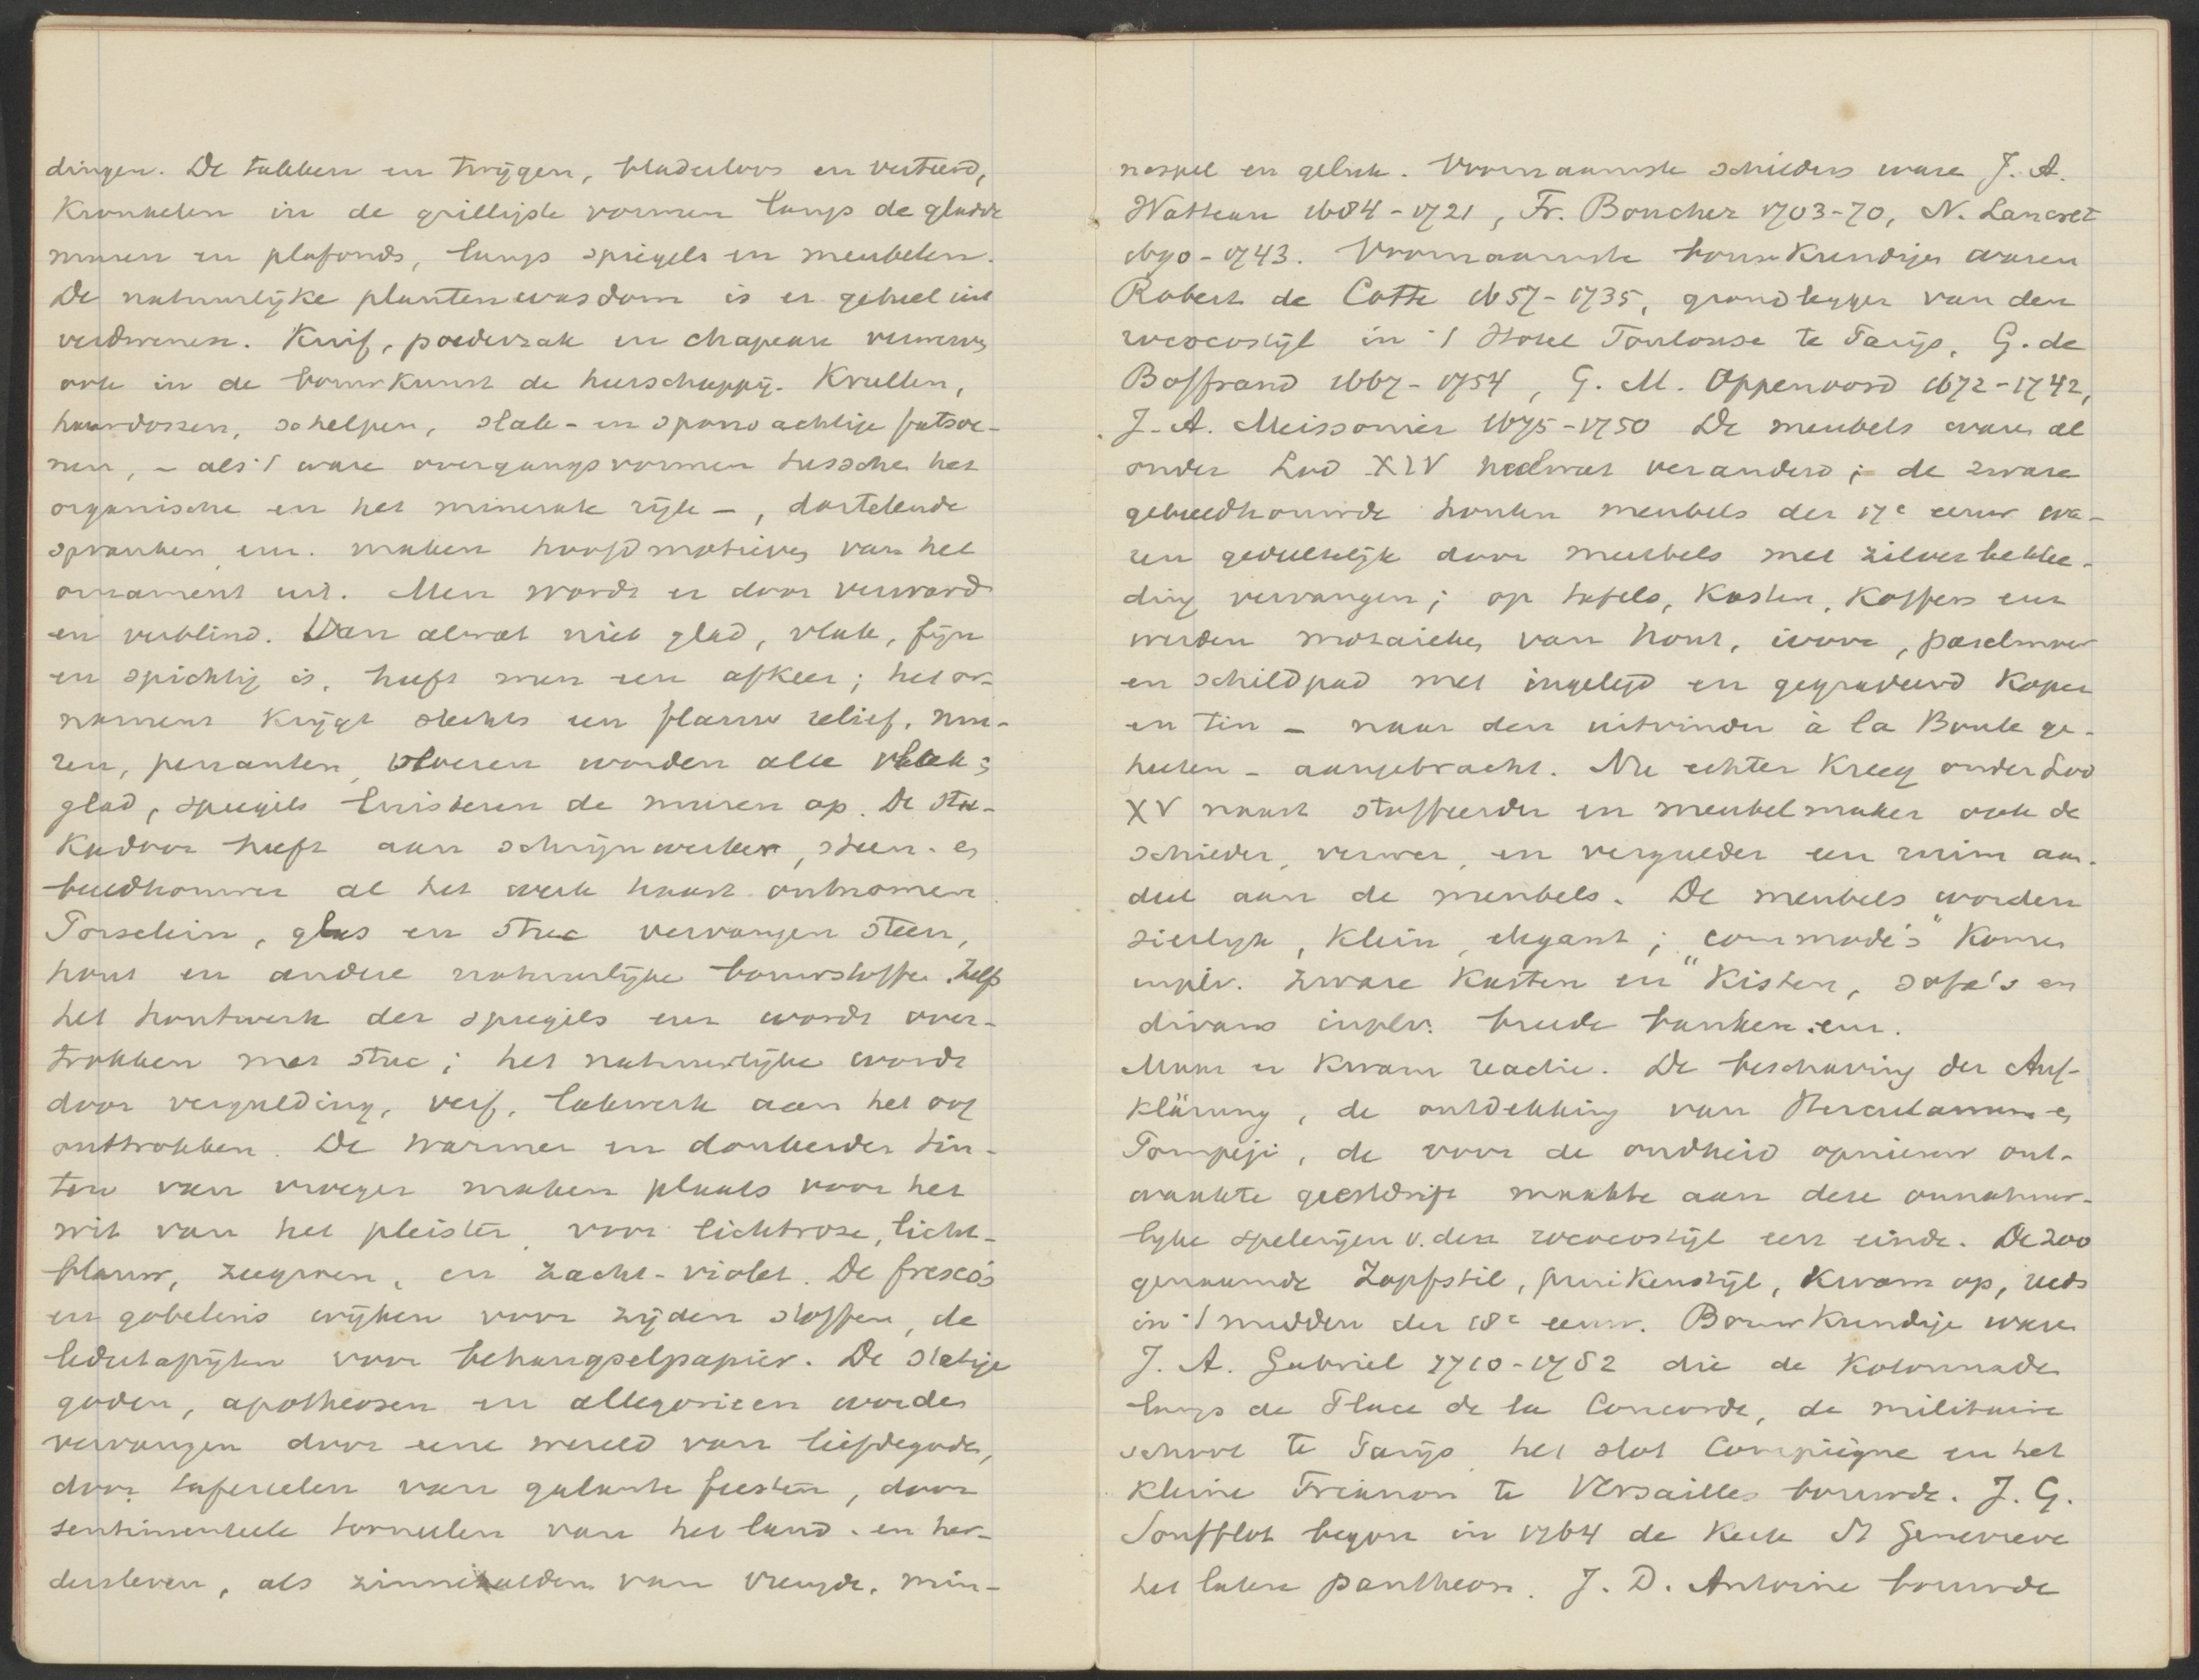 dingen. De takken en twijgen, bladerloos en verteerd,
Kronkelen in de grilligste vormen langs de gladde
muren en plafonds, langs spiegels en meubelen.
De natuurlijke plantenwasdom is er geheel uit
verdwenen. Kuif, poederzak en chapeau verwerven
ook in de bouwkunst de heerschappij. Krullen,
haardossen, schelpen, slak- en sponsachtige fatsoe-
nen, – als 't ware overgangsvormen tussche het
organische en het minerale rijk –, dartelende
spranken enz. maken hoofdmotieven van het
ornament uit. Men wordt er door verward
en verblind. Van alwat niet glad, vlak, fijn
en spichtig is, heeft men een afkeer; het or-
nament krijgt slechts een flauw relief, mu-
ren, penanten, vloeren worden alle vlak;
glad, spiegels luisteren de muren op. De stu-
kadoor heeft aan schrijnwerker, steen- en
beeldhouwer al het werk haast ontnomen.
Porselein, glas en stuc vervangen steen,
hout en andere natuurlijke bouwstoffen. Zelfs
het houtwerk der spiegels enz wordt over-
trokken met stuc; het natuurlijke wordt
door verguldsing, verf, lakwerk aan het oog
onttrokken. De warmer en donkerder tin-
ten van vroeger maken plaats voor het
wit van het pleister, voor lichtrose, licht-
blauw, zeegroen, en zacht-violet. De fresco's
en gobelins wijken voor zijden stoffen, de
ledertapijten voor behangselpapier. De statige
goden, apotheosen en allegorieen worden
vervangen door eene wereld van liefdegoden,
door tafereelen van galante feesten, door
sentimenteele tooneelen van het land- en her-
dersleven, als zinnebeelden van vreugde, min-
nespel en geluk. Voornaamste schilders ware J. A.
Watteau 1684-1721, Fr. Boucher 1703-70, N. Lancret
1690-1743. Voornaamste bouwkundigen waren
Robert de Cotte 1657-1735, grondlegger van den
rococostijl in 't Hotel Toulouse te Parijs, G. de
Boffrand 1667-1754, G. M. Oppenoord 1672-1742,
J. A. Meissonier 1675-1750 De meubels waren al
onder Lod XIV heelwat veranderd; de zware
gebeeldhouwde houten meubels der 17e eeuw wa-
ren gedeeltelijk door meubels met zilverbeklee-
ding vervangen; op tafels, kasten, koffers enz
werden mozaieken van hout, ivoor, paarlmoer
en schildpad met ingelegd en gegraveerd koper
en tin – naar den uitvinder à la Boule ge-
heeten – aangebracht. Nu echter kreeg onder Lod
XV naast stoffeerder en meubelmaker ook de
schilder, verwer, en vergulder een ruim aan-
deel aan de meubels. De meubels worden
sierlijk, klein, elegant; "commode's" komen
inplv. zware kasten en kisten, sofa's en
divans inplv. breede banken.enz.
Maar er kwam reactie. De beschaving der Auf-
klärung, de ontdekking van Herculanum en
Pompeji, de voor de oudheid opnieuw ont-
waakte geestdrift maakte aan deze onnatuur-
lijke spelerijen v. den rococostijl een einde. De zoo
genaamde Zopfstil, pruikenstijl, kwam op, reeds
in 't midden der 18e eeuw. Bouwkundige waren
J. A. Gabriel 1710-1782 die de kolonnade
langs de Place de la Concorde, de militaire
school te Parijs, het slot Compiègne en het
kleine Trianon te Versailles bouwde. J. G.
Soufflot begon in 1764 de kerk St Genevieve
het latere pantheon. J. D. Antoine bouwde